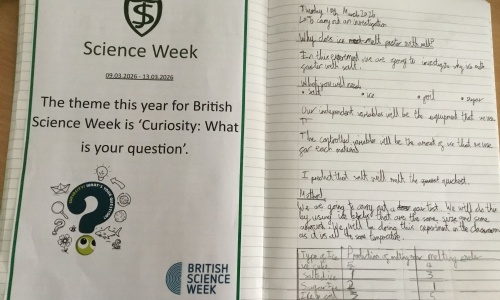 Science Week
09.03.2026 - 13.03.2026
The theme this year for British
Science Week is 'Curiosity: What
is your question'.
CURIOSITY: WHAT'S YOUR QUESTION?
BRITISH
SCIENCE
WEEK
March 2026
to carry out an investigation
Why does ice melt faster with salt?
In this experiment, we are going to investigate why ice melts
faster with salt.
What you will need
• salt • ice • • sugar
Our independent variables will be the equipment that we use
The controlled variables will be the amount of ice that we use
for each method
I predict that salt will melt the quickest.
Method
We are going to carry out a fair test. We will do this
by using ice that are the same size and same
amount. We will be doing this experiment in the classroom
as it is all the same temperature.
Type of Ice Prediction of melting melting order
3
Sugar Ice